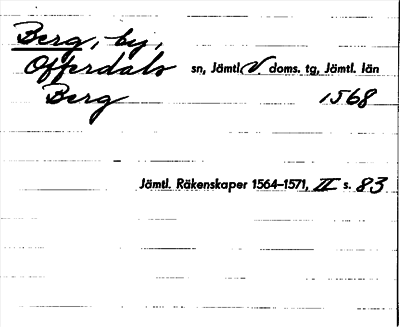 Berg, by,
Offerdals sn, Jämtl. V. doms. tg, Jämtl. län
Berg 1568
Jämtl. Räkenskaper 1564–1571, III s. 83